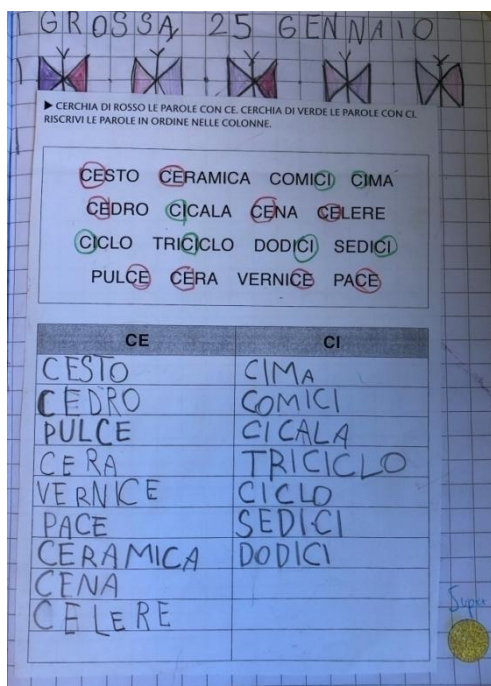 GROSSA, 25 GENNAIO
▶ CERCHIA DI ROSSO LE PAROLE CON CE. CERCHIA DI VERDE LE PAROLE CON CI.
RISCRIVI LE PAROLE IN ORDINE NELLE COLONNE.
CESTO CERAMICA COMICI CIMA
CEDRO CICALA CENA CELERE
CICLO TRICICLO DODICI SEDICI
PULCE CERA VERNICE PACE
CE CI
CESTO CIMA
CEDRO COMICI
PULCE CICALA
CERA TRICICLO
VERNICE CICLO
PACE SEDICI
CERAMICA DODICI
CENA
CELERE
Super